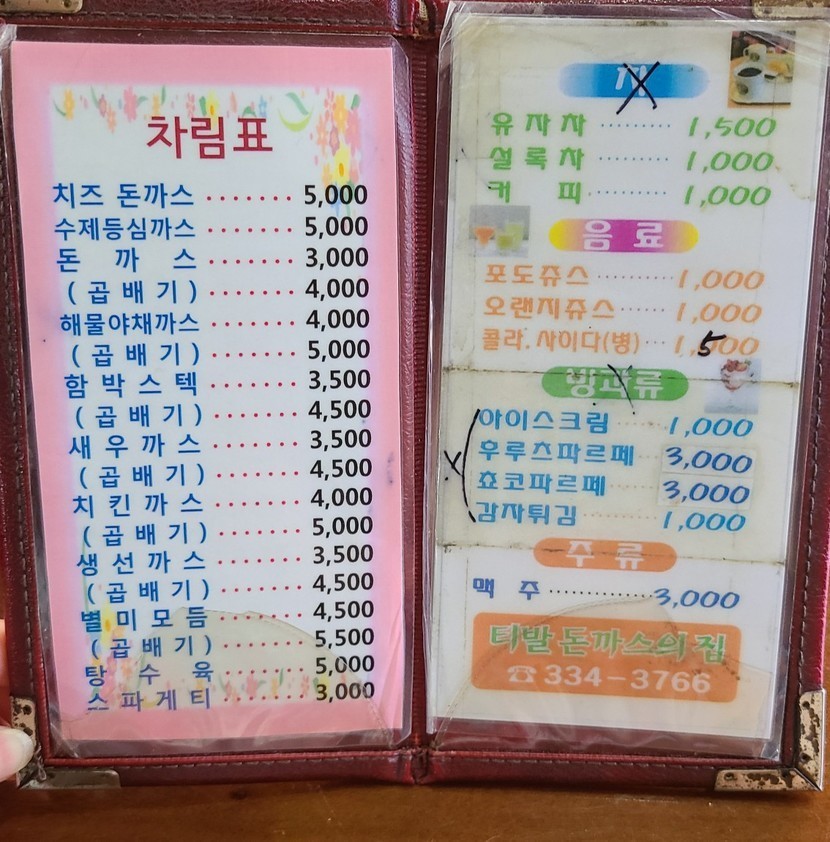 차림표
치즈 돈까스 ······· 5,000
수제등심까스 ······· 5,000
돈 까 스 ······· 3,000
(곱배기) ······· 4,000
해물야채까스 ······· 4,000
(곱배기) ······· 5,000
함박스텍 ······· 3,500
(곱배기) ······· 4,500
새우까스 ······· 3,500
(곱배기) ······· 4,500
치킨까스 ······· 4,000
(곱배기) ······· 5,000
생선까스 ······· 3,500
(곱배기) ······· 4,500
별미모듬 ······· 4,500
(곱배기) ······· 5,500
탕 수 육 ······· 5,000
스파게티 ······· 3,000
차
유자차 ········· 1,500
설록차 ········· 1,000
커 피 ········· 1,000
음료
포도쥬스 ········· 1,000
오랜지쥬스 ······ 1,000
콜라.사이다(병) ··· 1,500
빙과류
아이스크림 ······ 1,000
후루츠파르페 ···· 3,000
쵸코파르페 ······ 3,000
감자튀김 ········ 1,000
주류
맥 주 ············· 3,000
티발 돈까스의 집
☎334-3766